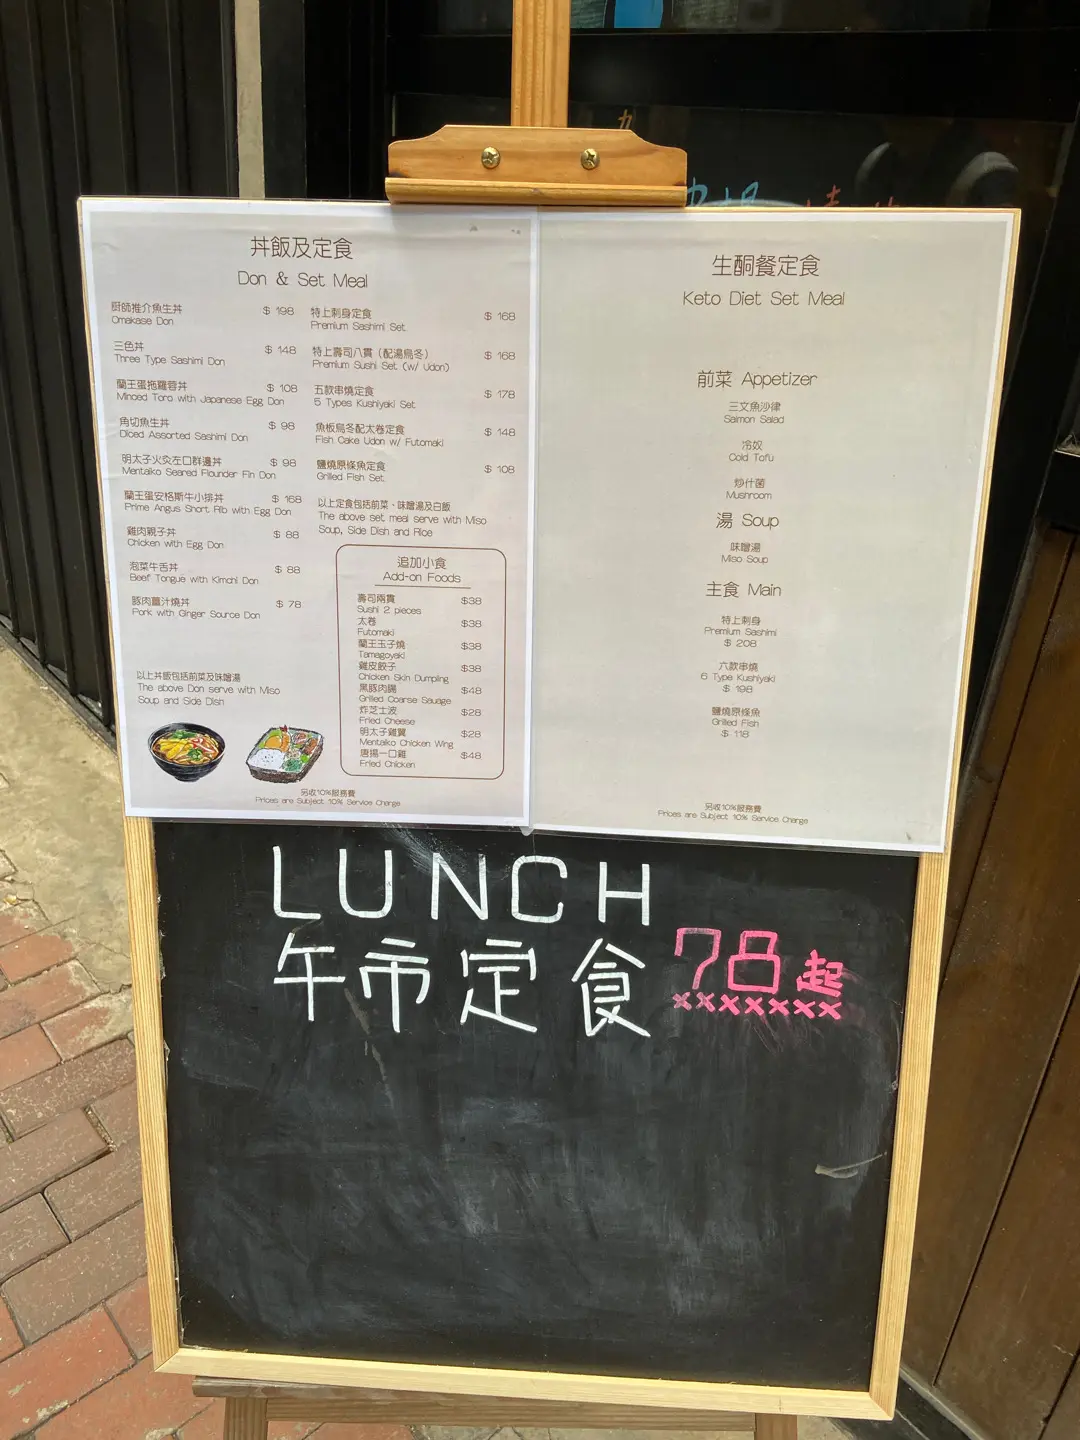 丼飯及定食
Don & Set Meal
廚師推介魚生丼 $ 198
Omakase Don
三色丼 $ 148
Three Type Sashimi Don
蘭王蛋拖羅蓉丼 $ 108
Minced Toro with Japanese Egg Don
角切魚生丼 $ 98
Diced Assorted Sashimi Don
明太子火炙左口群邊丼 $ 98
Mentaiko Seared Flounder Fin Don
蘭王蛋安格斯牛小排丼 $ 168
Prime Angus Short Rib with Egg Don
雞肉親子丼 $ 88
Chicken with Egg Don
泡菜牛舌丼 $ 88
Beef Tongue with Kimchi Don
豚肉薑汁燒丼 $ 78
Pork with Ginger Source Don
以上丼飯包括前菜及味噌湯
The above Don serve with Miso
Soup and Side Dish
特上刺身定食 $ 168
Premium Sashimi Set
特上壽司八貫（配湯烏冬） $ 168
Premium Sushi Set (w/ Udon)
五款串燒定食 $ 178
5 Types Kushiyaki Set
魚板烏冬配太卷定食 $ 148
Fish Cake Udon w/ Futomaki
鹽燒原條魚定食 $ 108
Grilled Fish Set
以上定食包括前菜、味噌湯及白飯
The above set meal serve with Miso
Soup, Side Dish and Rice
追加小食
Add-on Foods
壽司兩貫 $38
Sushi 2 pieces
太卷 $38
Futomaki
蘭王玉子燒 $38
Tamagoyaki
雞皮餃子 $38
Chicken Skin Dumpling
黑豚肉腸 $48
Grilled Coarse Sausage
炸芝士波 $28
Fried Cheese
明太子雞翼 $28
Mentaiko Chicken Wing
唐揚一口雞 $48
Fried Chicken
另收10%服務費
Prices are Subject 10% Service Charge
生酮餐定食
Keto Diet Set Meal
前菜 Appetizer
三文魚沙律
Salmon Salad
冷奴
Cold Tofu
炒什菌
Mushroom
湯 Soup
味噌湯
Miso Soup
主食 Main
特上刺身
Premium Sashimi
$ 208
六款串燒
6 Type Kushiyaki
$ 198
鹽燒原條魚
Grilled Fish
$ 118
另收10%服務費
Prices are Subject 10% Service Charge
LUNCH
午市定食 78起